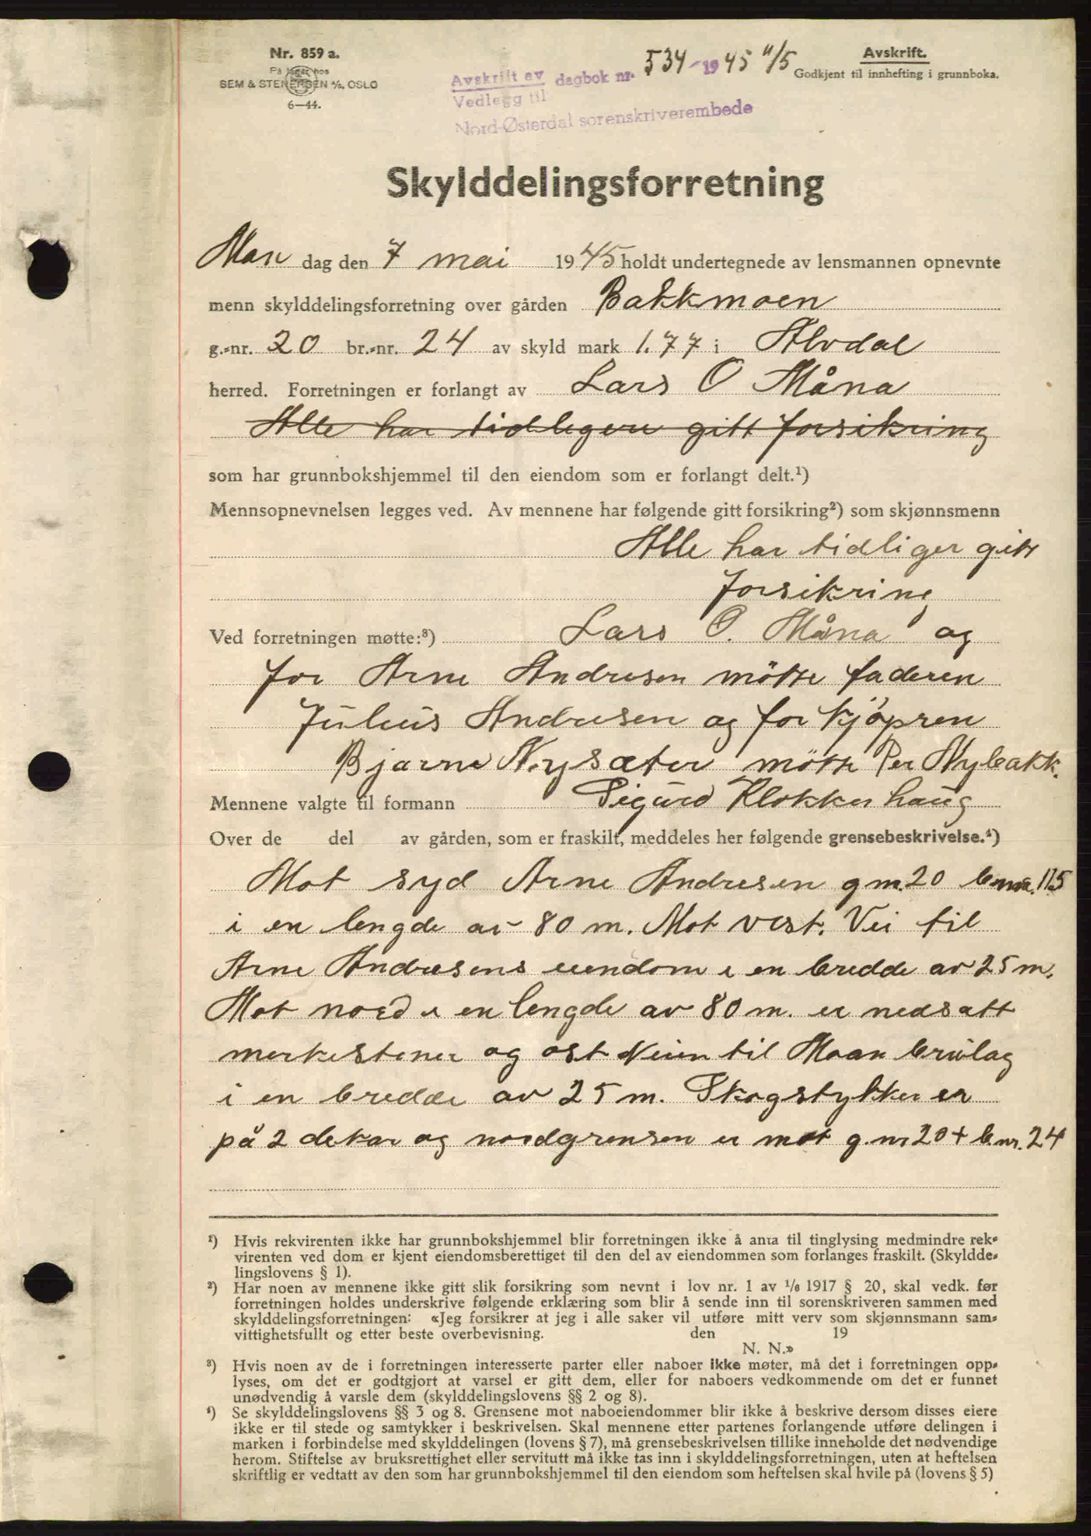 Nr. 859 a.
På lager hos
SEM & STENERSEN A/S, OSLO
6—44.
Avskrift av dagbok nr. 534 - 1945 11/5
Vedlegg til
Nord-Østerdal sorenskriverembede
Avskrift.
Godkjent til innhefting i grunnboka.
Skylddelingsforretning
Man dag den 7 mai 1945 holdt undertegnede av lensmannen opnevnte
menn skylddelingsforretning over gården Bakkmoen
g.-nr. 20 br.-nr. 24 av skyld mark 1.77 i Alvdal
herred. Forretningen er forlangt av Lars O Måna
Alle har tidligere gitt forsikring
som har grunnbokshjemmel til den eiendom som er forlangt delt.¹)
Mennsopnevnelsen legges ved. Av mennene har følgende gitt forsikring²) som skjønnsmenn
Alle har tidliger gitt
forsikring
Ved forretningen møtte:³) Lars O. Måna og
for Arne Andresen møtte faderen
Julius Andresen og for kjøpren
Bjarne Nysæter møtte Per Nybakk.
Mennene valgte til formann Sigurd Klokkerhaug
Over de del av gården, som er fraskilt, meddeles her følgende grensebeskrivelse.⁴)
Mot syd Arne Andresen g.nr. 20 b.nr. 115
i en lengde av 80 m. Mot vest. Vei til
Arne Andresens eiendom i en bredde av 25 m.
Mot nord i en lengde av 80 m. er nedsatt
merkestener og øst Veien til Moan brulag
i en bredde av 25 m. Skogstykker er
på 2 dekar og nordgrensen er mot g.nr 20 + b.nr. 24
¹) Hvis rekvirenten ikke har grunnbokshjemmel blir forretningen ikke å anta til tinglysing medmindre rek-
virenten ved dom er kjent eiendomsberettiget til den del av eiendommen som forlanges fraskilt. (Skyldde-
lingslovens § 1).
²) Har noen av mennene ikke gitt slik forsikring som nevnt i lov nr. 1 av 1/6 1917 § 20, skal vedk. før
forretningen holdes underskrive følgende erklæring som blir å sende inn til sorenskriveren sammen med
skylddelingsforretningen: «Jeg forsikrer at jeg i alle saker vil utføre mitt verv som skjønnsmann sam-
vittighetsfullt og etter beste overbevisning. den 19
N. N.»
³) Hvis noen av de i forretningen interesserte parter eller naboer ikke møter, må det i forretningen opp-
lyses, om det er godtgjort at varsel er gitt dem, eller for naboers vedkommende om det er funnet
unødvendig å varsle dem (skylddelingslovens §§ 2 og 8).
⁴) Se skylddelingslovens §§ 3 og 8. Grensene mot naboeiendommer blir ikke å beskrive dersom disses eiere
ikke er til stede og samtykker i beskrivelsen. Skal mennene etter partenes forlangende utføre delingen i
marken i forbindelse med skylddelingen (lovens § 7), må grensebeskrivelsen tillike inneholde det nødvendige
herom. Stiftelse av bruksrettighet eller servitutt må ikke tas inn i skylddelingsforretningen, uten at heftelsen
skriftlig er vedtatt av den som har grunnbokshjemmel til den eiendom som heftelsen skal hvile på (lovens § 5)